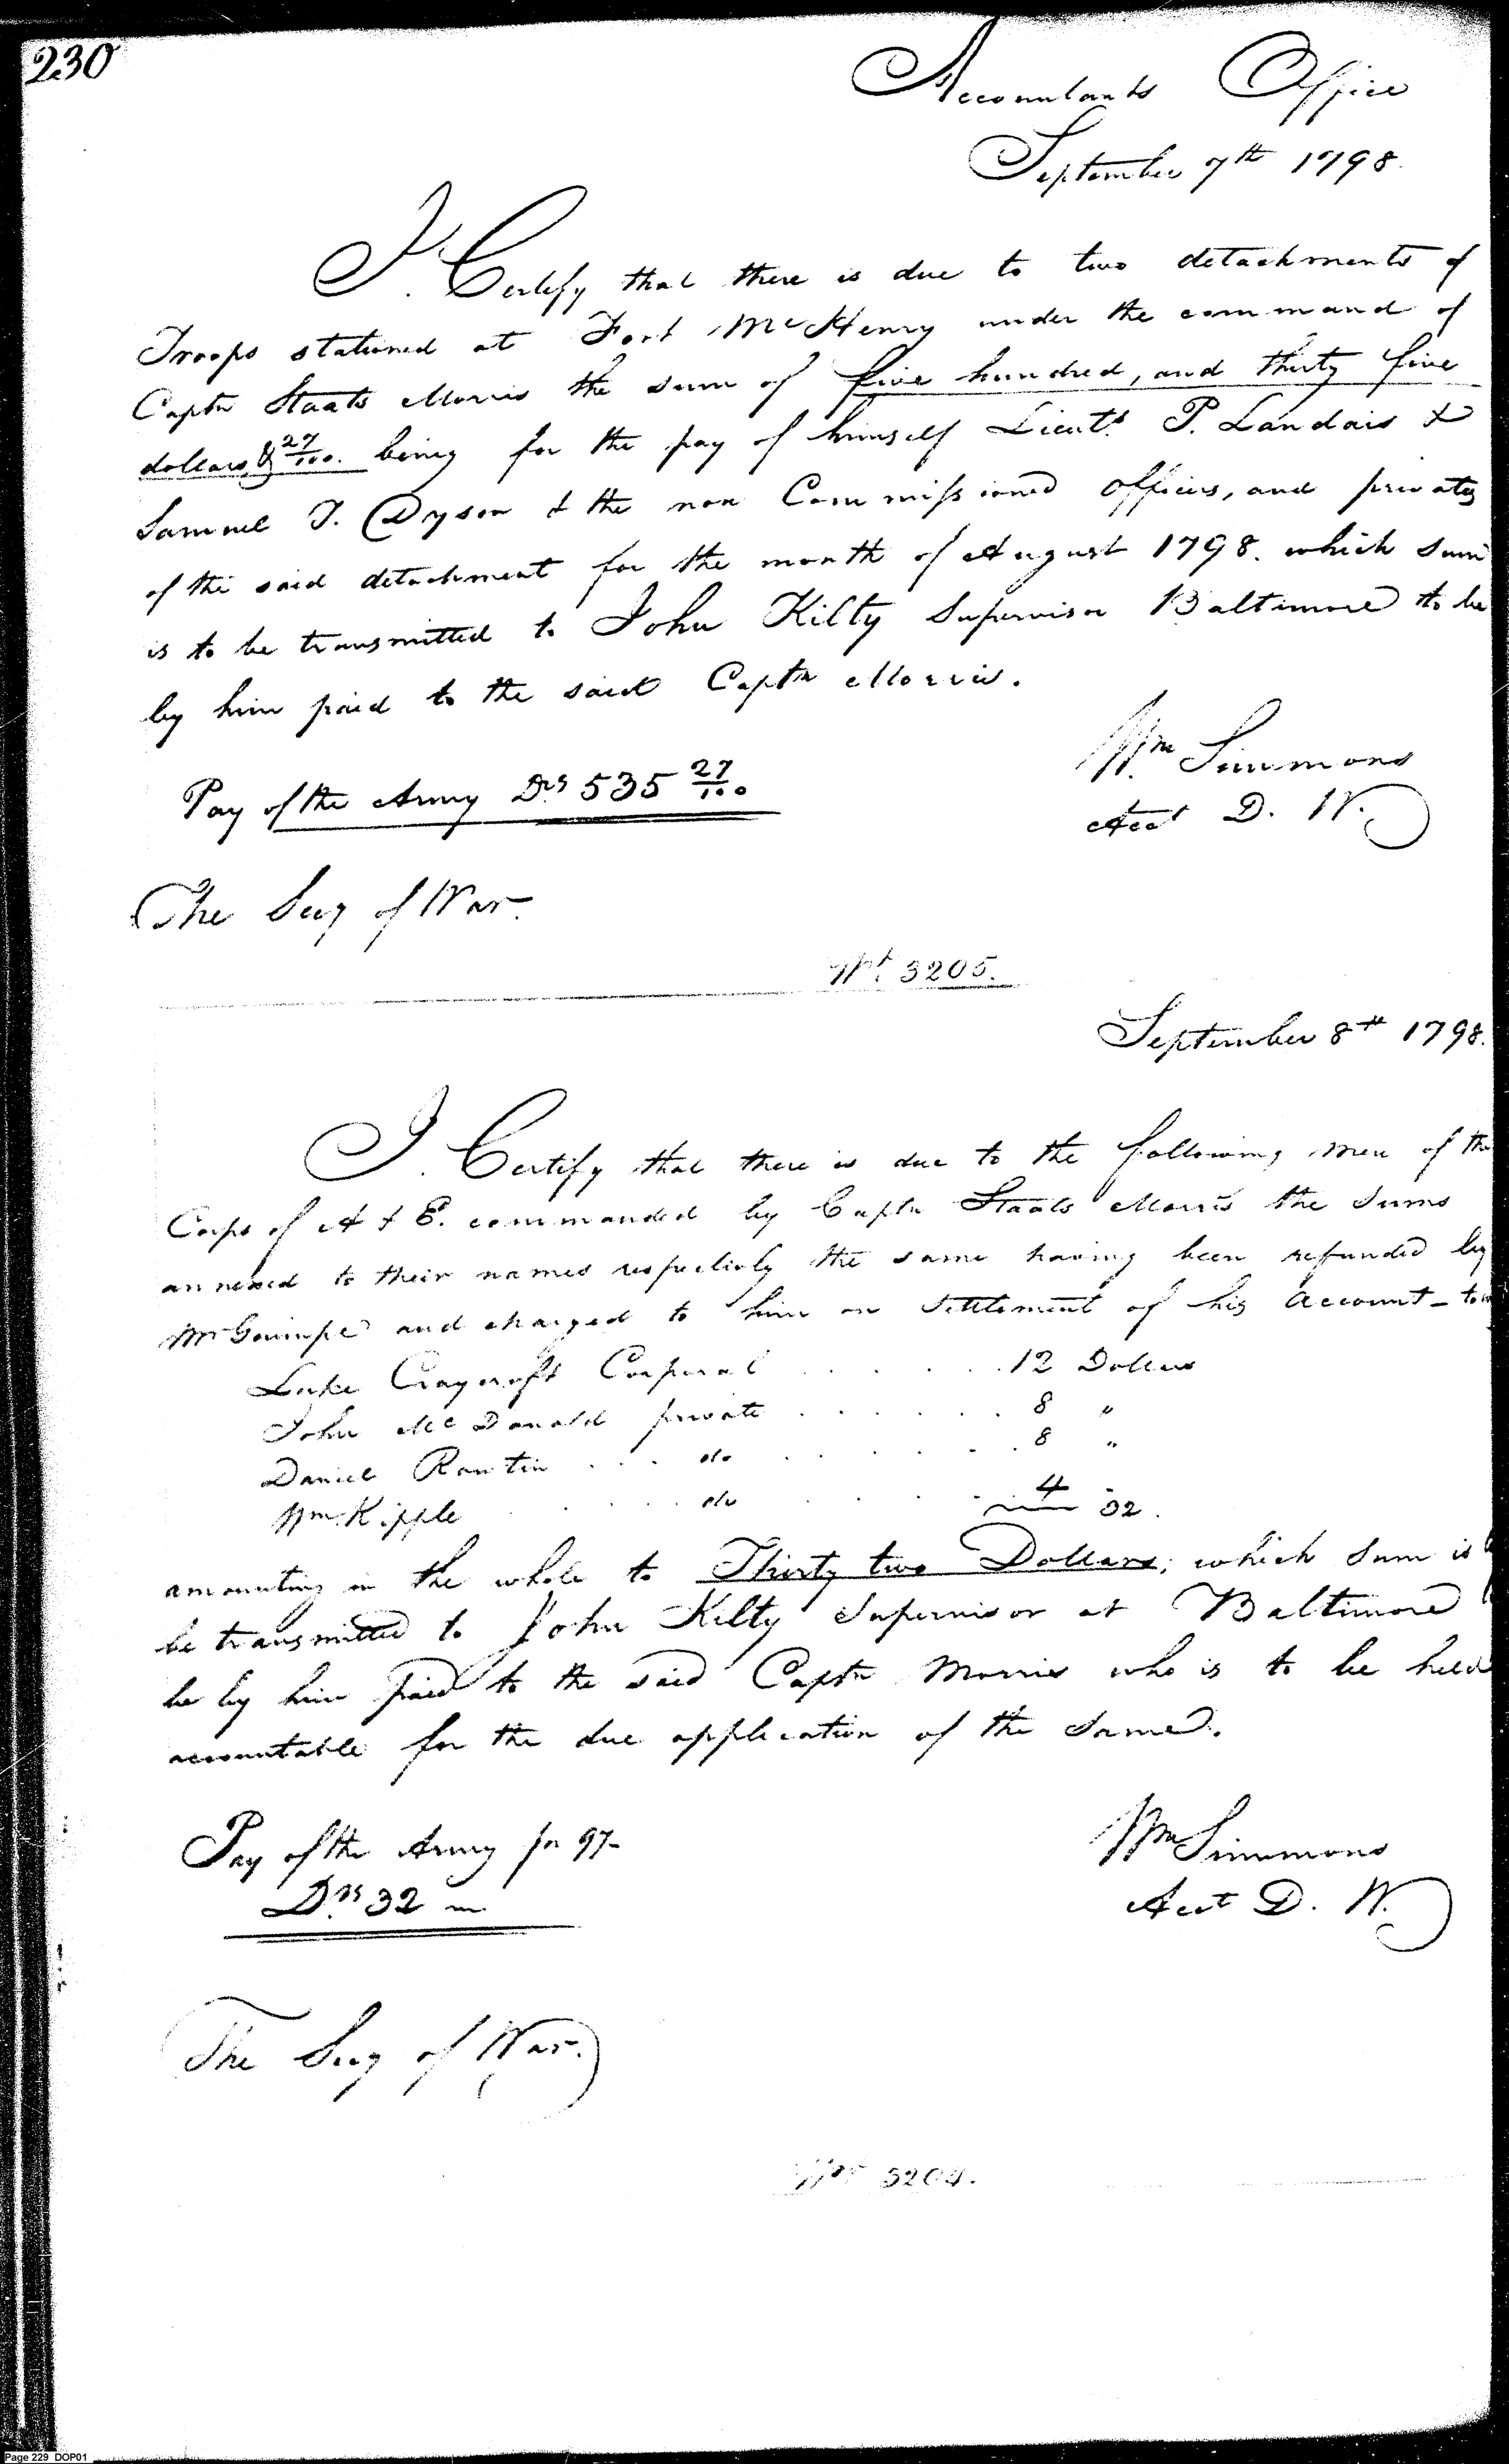 230
Accountants Office
September 7th 1798.
I Certify that there is due to two detachments of
Troops stationed at Fort McHenry under the command of
Captn Staats Morris the sum of five hundred, and thirty five
dollars & 27/100. being for the pay of himself Lieuts. P. Landais &
Samuel T. Dyson & the non Commissioned officers, and privates
of the said detachment for the month of August 1798. which sum
is to be transmitted to John Kilty Supervisor Baltimore to be
by him paid to the said Captn Morris.
Wm Simmons
Pay of the Army Drs 535 27/100
Acct D. W.
The Secy of War.
Wt. 3205.
September 8th 1798.
I Certify that there is due to the following men of the
Corps of A & E. commanded by Captn Staats Morris the Sums
annexed to their names respectively the same having been refunded by
Mr and charged to him on Settlement of his Account - to
Luke Craycroft Corporal . . . . . 12 Dollars
John McDonald private . . . . . . 8 "
Daniel Rawtin . . . do . . . . . 8 "
Wm. Kipple . . . . do . . . . 4
32.
amounting in the whole to Thirty two Dollars; which Sum is
be transmitted to John Kilty Supervisor at Baltimore
be by him paid to the said Captn Morris who is to be held
accountable for the due application of the Same.
Pay of the Army for 97-
Wm Simmons
Drs 32
Acct D. W.
The Secy of War.
Wt 3204.
Page 229 DOP01